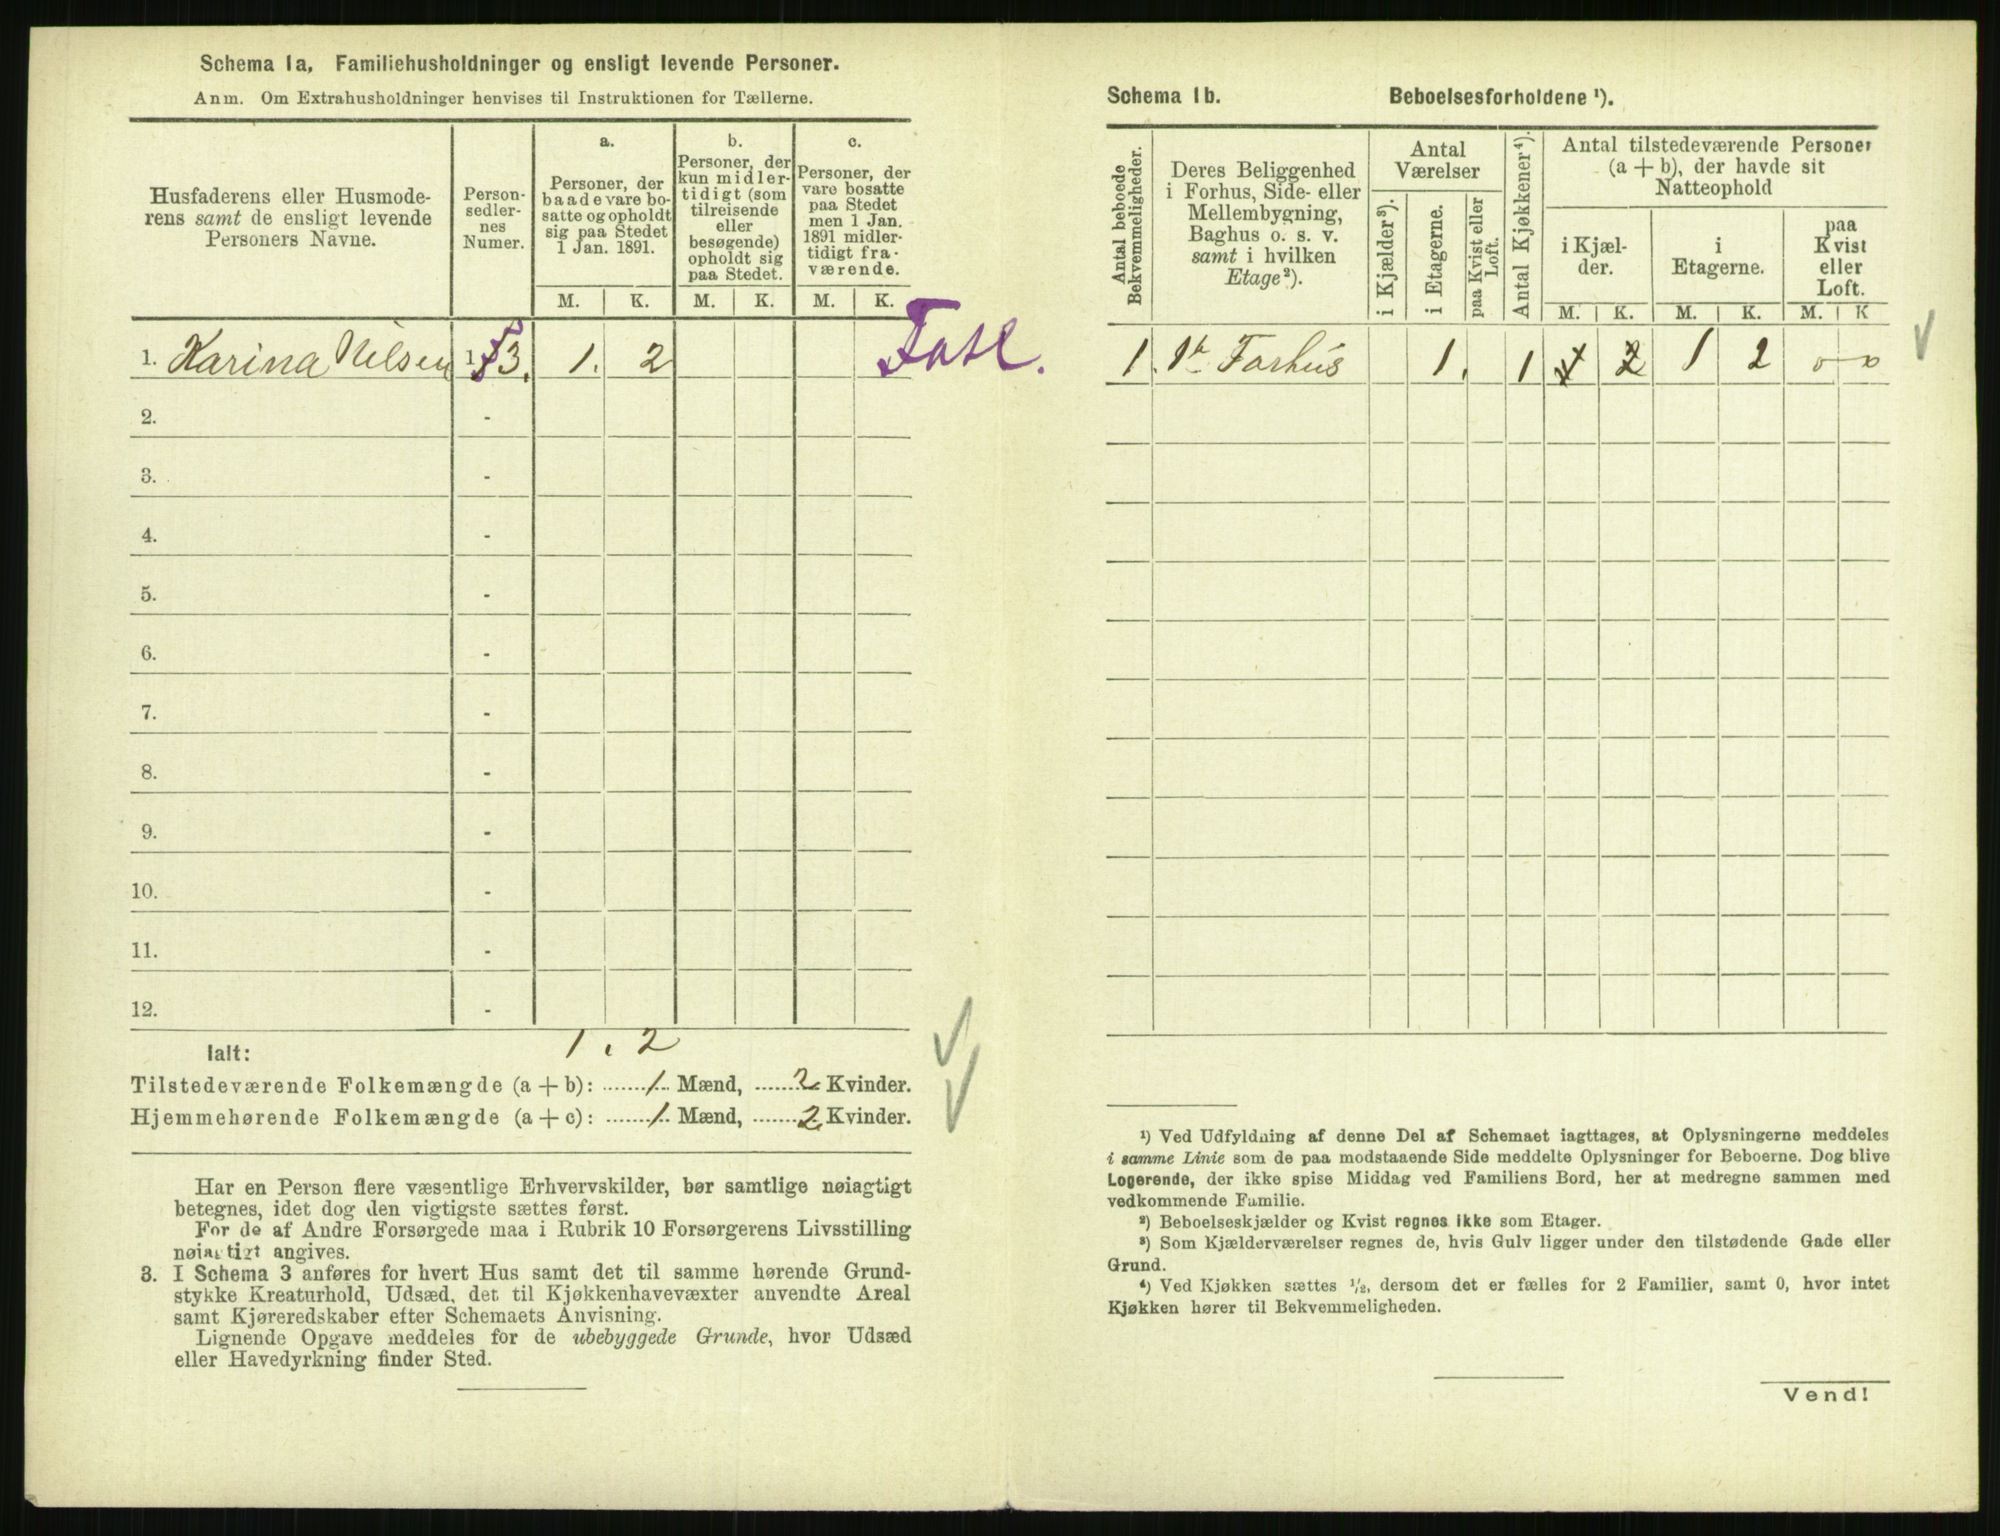 Schema 1a, Familiehusholdninger og ensligt levende Personer.
Anm. Om Extrahusholdninger henvises til Instruktionen for Tællerne.
Husfaderens eller Husmode-
rens samt de ensligt levende
Personers Navne.
Person-
sedler-
nes
Numer.
a.
Personer, der
baade vare bo-
satte og opholdt
sig paa Stedet
1 Jan. 1891.
b.
Personer, der
kun midler-
tidigt (som
tilreisende
eller
besøgende)
opholdt sig
paa Stedet.
c.
Personer, der
vare bosatte
paa Stedet
men 1 Jan.
1891 midler-
tidigt fra-
værende.
M. K. M. K. M. K.
1. Karina Nilsen 3. 1. 2
2. -
3. -
4. -
5. -
6. -
7. -
8. -
9. -
10. -
11. -
12. -
Ialt: 1. 2
Tilstedeværende Folkemængde (a + b): 1 Mænd, 2 Kvinder.
Hjemmehørende Folkemængde (a + c): 1 Mænd, 2 Kvinder.
Har en Person flere væsentlige Erhvervskilder, bør samtlige nøiagtigt
betegnes, idet dog den vigtigste sættes først.
For de af Andre Forsørgede maa i Rubrik 10 Forsørgerens Livsstilling
nøiagtigt angives.
3. I Schema 3 anføres for hvert Hus samt det til samme hørende Grund-
stykke Kreaturhold, Udsæd, det til Kjøkkenhavevæxter anvendte Areal
samt Kjøreredskaber efter Schemaets Anvisning.
Lignende Opgave meddeles for de ubebyggede Grunde, hvor Udsæd
eller Havedyrkning finder Sted.
Schema 1b. Beboelsesforholdene ¹).
Antal beboede
Bekvemmeligheder.
Deres Beliggenhed
i Forhus, Side- eller
Mellembygning,
Baghus o. s. v.
samt i hvilken
Etage²).
Antal
Værelser
i Kjælder³).
i Etagerne.
paa Kvist eller
Loft.
Antal Kjøkkener⁴).
Antal tilstedeværende Personer
(a + b), der havde sit
Natteophold
i Kjæl-
der.
i
Etagerne.
paa
Kvist
eller
Loft.
M. K. M. K. M. K
1. Forhus 1. 1 1 2 1 2 o o
¹) Ved Udfyldning af denne Del af Schemaet iagttages, at Oplysningerne meddeles
i samme Linie som de paa modstaaende Side meddelte Oplysninger for Beboerne. Dog blive
Logerende, der ikke spise Middag ved Familiens Bord, her at medregne sammen med
vedkommende Familie.
²) Beboelseskjælder og Kvist regnes ikke som Etager.
³) Som Kjælderværelser regnes de, hvis Gulv ligger under den tilstødende Gade eller
Grund.
⁴) Ved Kjøkken sættes ¹/₂, dersom det er fælles for 2 Familier, samt 0, hvor intet
Kjøkken hører til Bekvemmeligheden.
Vend!